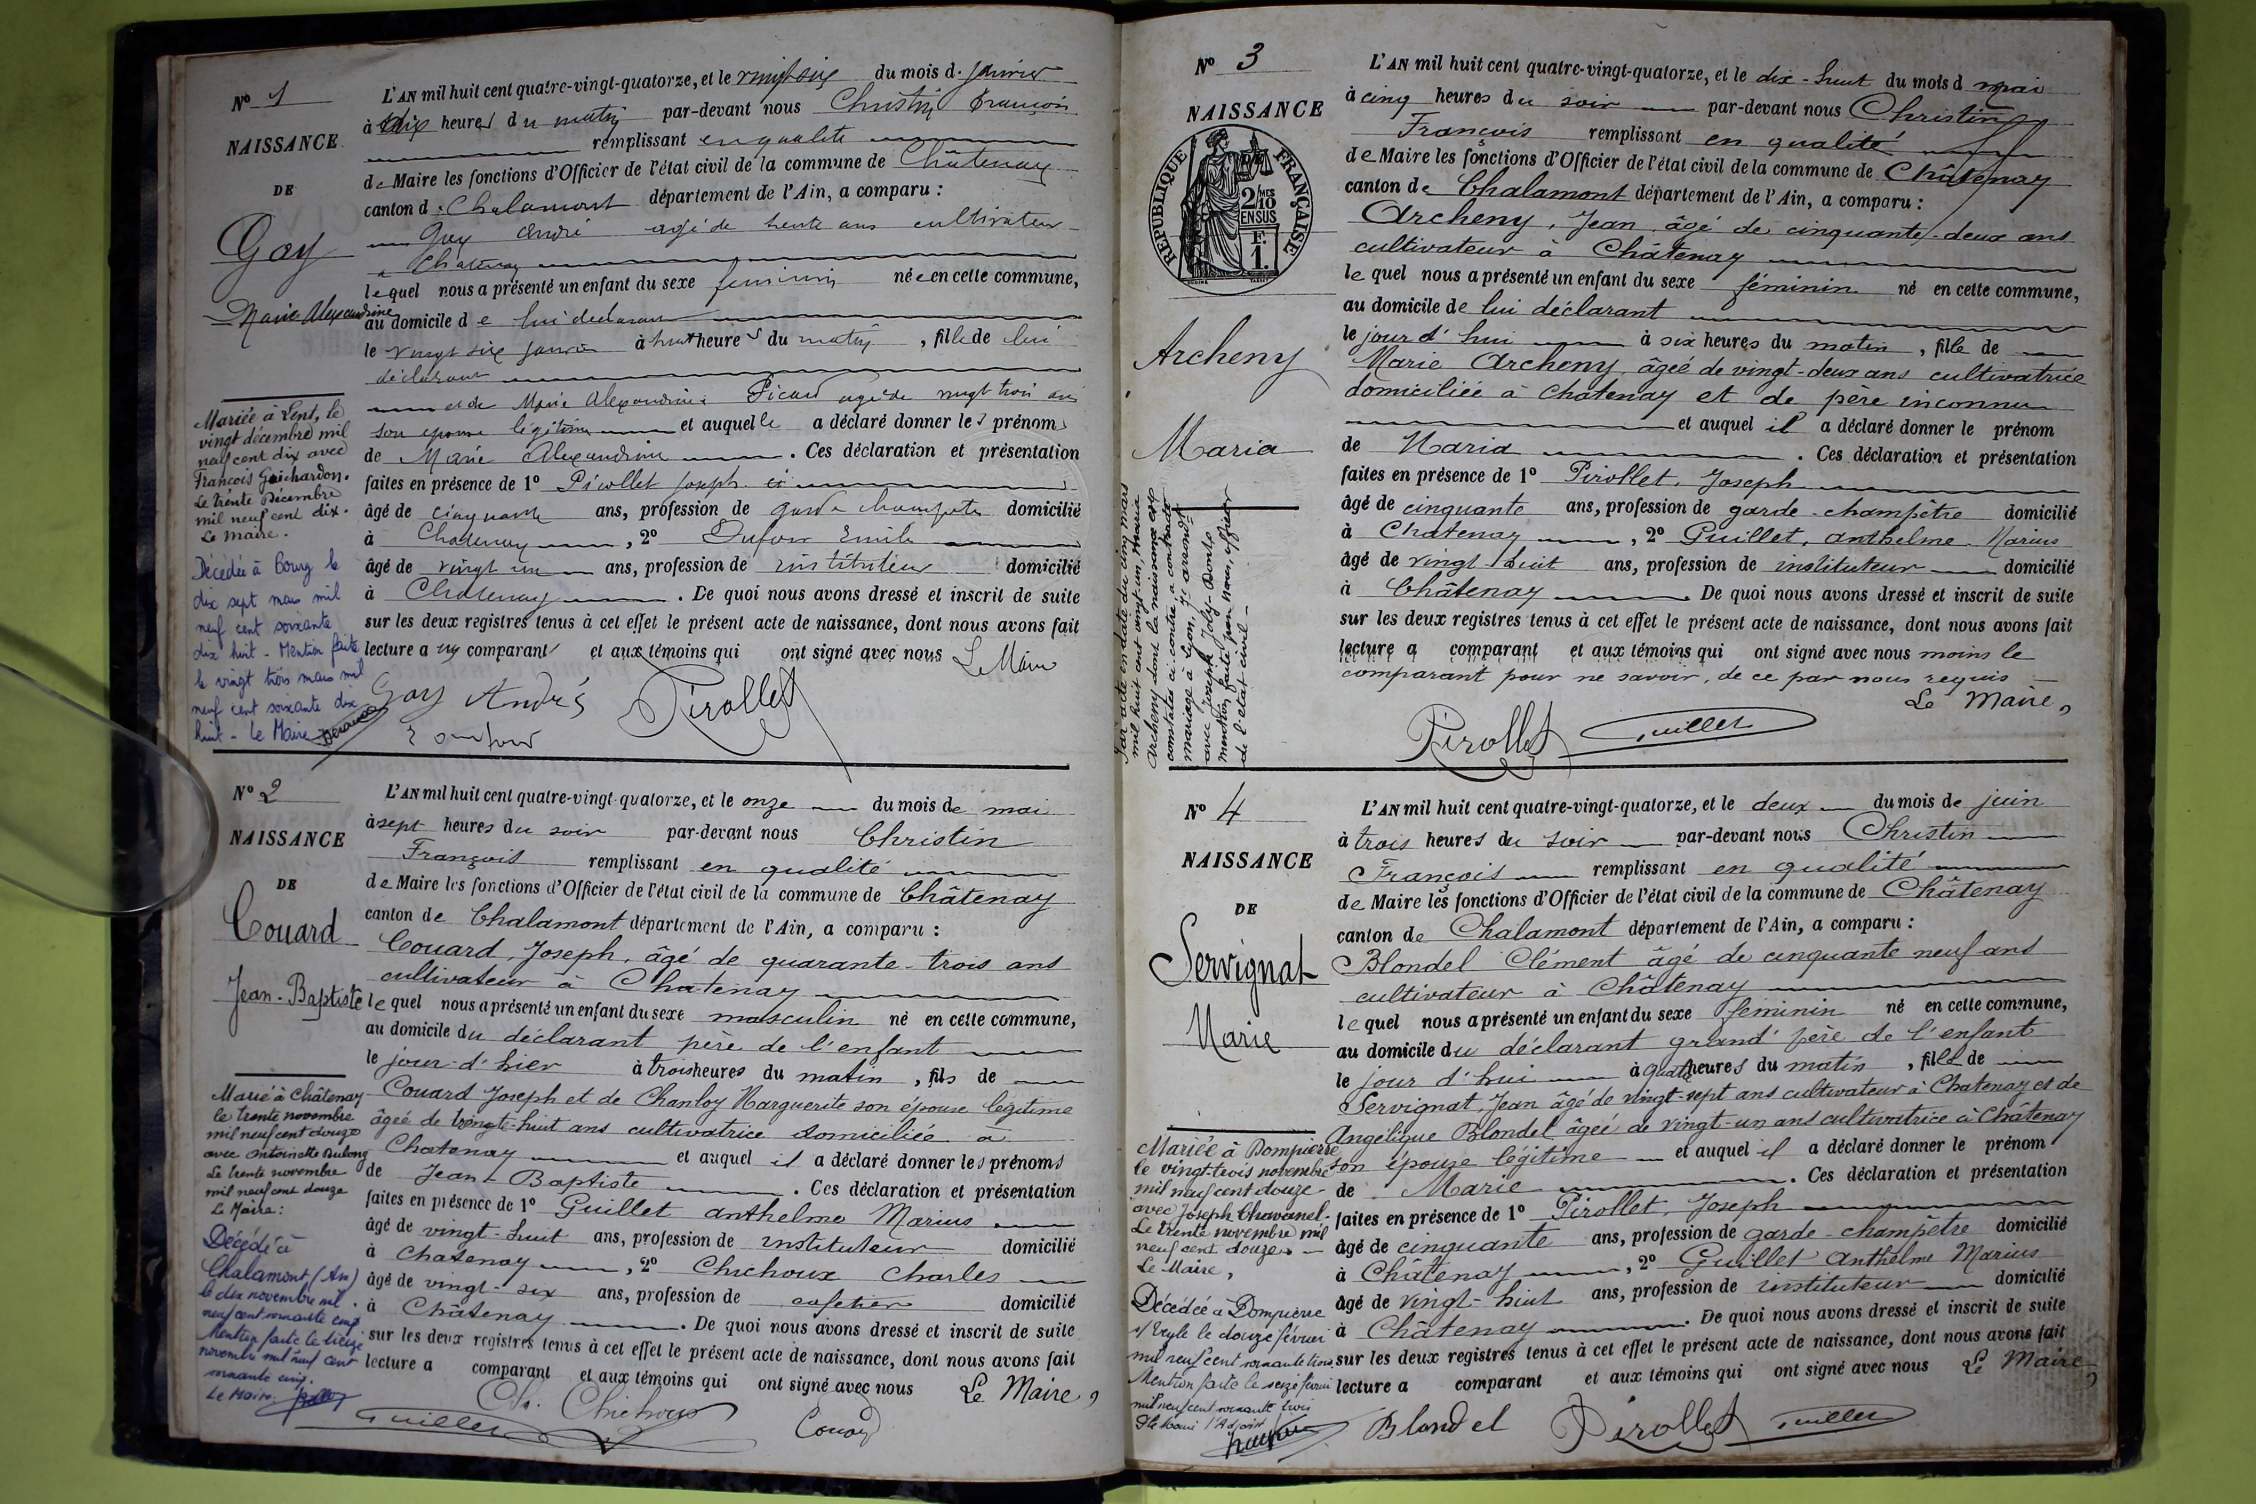 Nº 1
NAISSANCE
DE
Gay
Marie Alexandrine
Mariée à Lent, le
vingt décembre mil
neuf cent dix avec
François Guichardon.
Le trente Décembre
mil neuf cent dix.
Le Maire.
Décédée à Bourg le
dix sept mars mil
neuf cent soixante
dix huit - Mention faite
le vingt trois mars mil
neuf cent soixante dix
huit - le Maire
L'AN mil huit cent quatre-vingt-quatorze, et le vingt six du mois d. janvier
à dix heures du matin par-devant nous Christin François
remplissant en qualité
de Maire les fonctions d'Officier de l'état civil de la commune de Châtenay
canton d. Chalamont département de l'Ain, a comparu :
Gay André agé de trente ans cultivateur
à Chatenay
lequel nous a présenté un enfant du sexe feminin née en cette commune,
au domicile de lui déclarant
le vingt six janvier à huit heures du matin, fille de lui
déclarant
et de Marie Alexandrine Picard agée de vingt trois ans
son epouse légitime et auquelle a déclaré donner les prénoms
de Marie Alexandrine. Ces déclaration et présentation
faites en présence de 1º Pirollet Joseph
âgé de cinquante ans, profession de garde champetre domicilié
à Chatenay, 2º Dufour Emile
âgé de vingt un ans, profession de instituteur domicilié
à Chatenay. De quoi nous avons dressé et inscrit de suite
sur les deux registres tenus à cet effet le présent acte de naissance, dont nous avons fait
lecture au comparant et aux témoins qui ont signé avec nous Le Maire
Gay André Pirollet
E Dufour
Nº 2
NAISSANCE
DE
Couard
Jean-Baptiste
Marié à Châtenay
le trente novembre
mil neuf cent douze
avec Antoinette Dulong
Le trente novembre
mil neuf cent douze
Le Maire :
Décédé à
Chalamont (Ain)
le dix novembre mil
neuf cent soixante cinq
Mention faite le treize
novembre mil neuf cent
soixante cinq.
Le Maire.
L'AN mil huit cent quatre-vingt-quatorze, et le onze du mois de mai
à sept heures du soir par-devant nous Christin
François remplissant en qualité
de Maire les fonctions d'Officier de l'état civil de la commune de Châtenay
canton de Chalamont département de l'Ain, a comparu :
Couard, Joseph, âgé de quarante-trois ans
cultivateur à Chatenay
lequel nous a présenté un enfant du sexe masculin né en cette commune,
au domicile du déclarant père de l'enfant
le jour-d'hier à trois heures du matin, fils de
Couard Joseph et de Chanloy Marguerite son épouse légitime
âgée de trente-huit ans cultivatrice domiciliée à
Chatenay et auquel il a déclaré donner les prénoms
de Jean-Baptiste. Ces déclaration et présentation
faites en présence de 1º Guillet anthelme Marius
âgé de vingt-huit ans, profession de instituteur domicilié
à Chatenay, 2º Chichoux Charles
âgé de vingt-six ans, profession de cafetier domicilié
à Châtenay. De quoi nous avons dressé et inscrit de suite
sur les deux registres tenus à cet effet le présent acte de naissance, dont nous avons fait
lecture a comparant et aux témoins qui ont signé avec nous Le Maire,
Guillet Ch. Chichoux Couard
Nº 3
NAISSANCE
RÉPUBLIQUE FRANÇAISE
2 MES
10
EN SUS
F.
1.
Archeny
Maria
Par acte en date du cinq mars
mil huit cent vingt un, Maria
Archeny dont la naissance est
constatée ci-contre a contracté
mariage à Lyon, 7e arrondt
avec Joseph Joly-Donts
mention faite par nous, officier
de l'état civil -
L'AN mil huit cent quatre-vingt-quatorze, et le dix-huit du mois d mai
à cinq heures du soir par-devant nous Christin
François remplissant en qualité
de Maire les fonctions d'Officier de l'état civil de la commune de Châtenay
canton de Chalamont département de l'Ain, a comparu :
Archeny, Jean, âgé de cinquante-deux ans
cultivateur à Châtenay
lequel nous a présenté un enfant du sexe féminin né en cette commune,
au domicile de lui déclarant
le jour d'hui à six heures du matin, fille de
Marie Archeny, âgée de vingt-deux ans cultivatrice
domiciliée à Chatenay et de père inconnu
et auquel il a déclaré donner le prénom
de Maria. Ces déclaration et présentation
faites en présence de 1º Pirollet, Joseph
âgé de cinquante ans, profession de garde-champêtre domicilié
à Chatenay, 2º Guillet, anthelme Marius
âgé de vingt huit ans, profession de instituteur domicilié
à Châtenay. De quoi nous avons dressé et inscrit de suite
sur les deux registres tenus à cet effet le présent acte de naissance, dont nous avons fait
lecture a comparant et aux témoins qui ont signé avec nous moins le
comparant pour ne savoir, de ce par nous requis
Le Maire,
Pirollet Guillet
Nº 4
NAISSANCE
DE
Servignat
Marie
Mariée à Dompierre
le vingt-trois novembre
mil neuf cent douze
avec Joseph Chavanel.
Le trente novembre mil
neuf cent douze.
Le Maire,
Décédée à Dompierre
s/ Veyle le douze février
mil neuf cent soixante trois
Mention faite le seize février
mil neuf cent soixante trois
P/le Maire l'Adjoint
L'AN mil huit cent quatre-vingt-quatorze, et le deux du mois de juin
à trois heures du soir par-devant nous Christin
François remplissant en qualité
de Maire les fonctions d'Officier de l'état civil de la commune de Châtenay
canton de Chalamont département de l'Ain, a comparu :
Blondel Clément âgé de cinquante neuf ans
cultivateur à Châtenay
lequel nous a présenté un enfant du sexe féminin né en cette commune,
au domicile du déclarant grand'père de l'enfant
le jour d'hui à quatre heures du matin, fille de
Servignat, Jean âgé de vingt-sept ans cultivateur à Chatenay et de
Angélique Blondel âgée de vingt-un ans cultivatrice à Châtenay
son épouse légitime et auquel il a déclaré donner le prénom
de Marie. Ces déclaration et présentation
faites en présence de 1º Pirollet, Joseph
âgé de cinquante ans, profession de garde-champêtre domicilié
à Châtenay, 2º Guillet Anthelme Marius
âgé de vingt-huit ans, profession de instituteur domicilié
à Châtenay. De quoi nous avons dressé et inscrit de suite
sur les deux registres tenus à cet effet le présent acte de naissance, dont nous avons fait
lecture a comparant et aux témoins qui ont signé avec nous Le Maire,
Blondel Pirollet Guillet